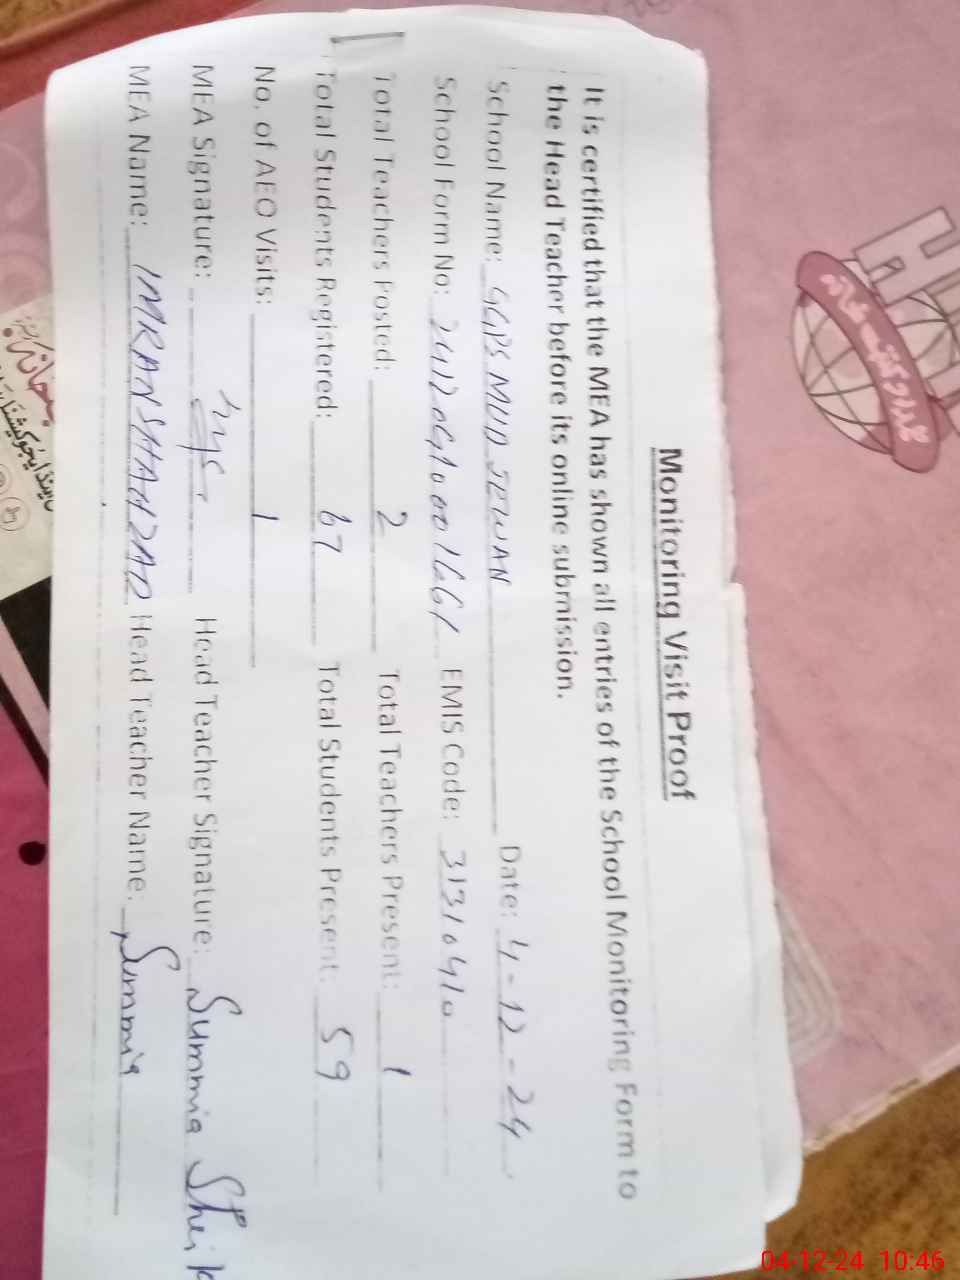 Monitoring Visit Proof
It is certified that the MEA has shown all entries of the School Monitoring Form to
the Head Teacher before its online submission.
School Name: GGPS MUD JEWAN Date: 4-12-24
School Form No: EMIS Code: 31310410
Total Teachers Posted: 2 Total Teachers Present: 1
Total Students Registered: 67 Total Students Present: 59
No. of AEO Visits: 1
MEA Signature: Head Teacher Signature: Summia Sheik
MEA Name: IMRAN SHAHZAD Head Teacher Name: Summia
04-12-24 10:45